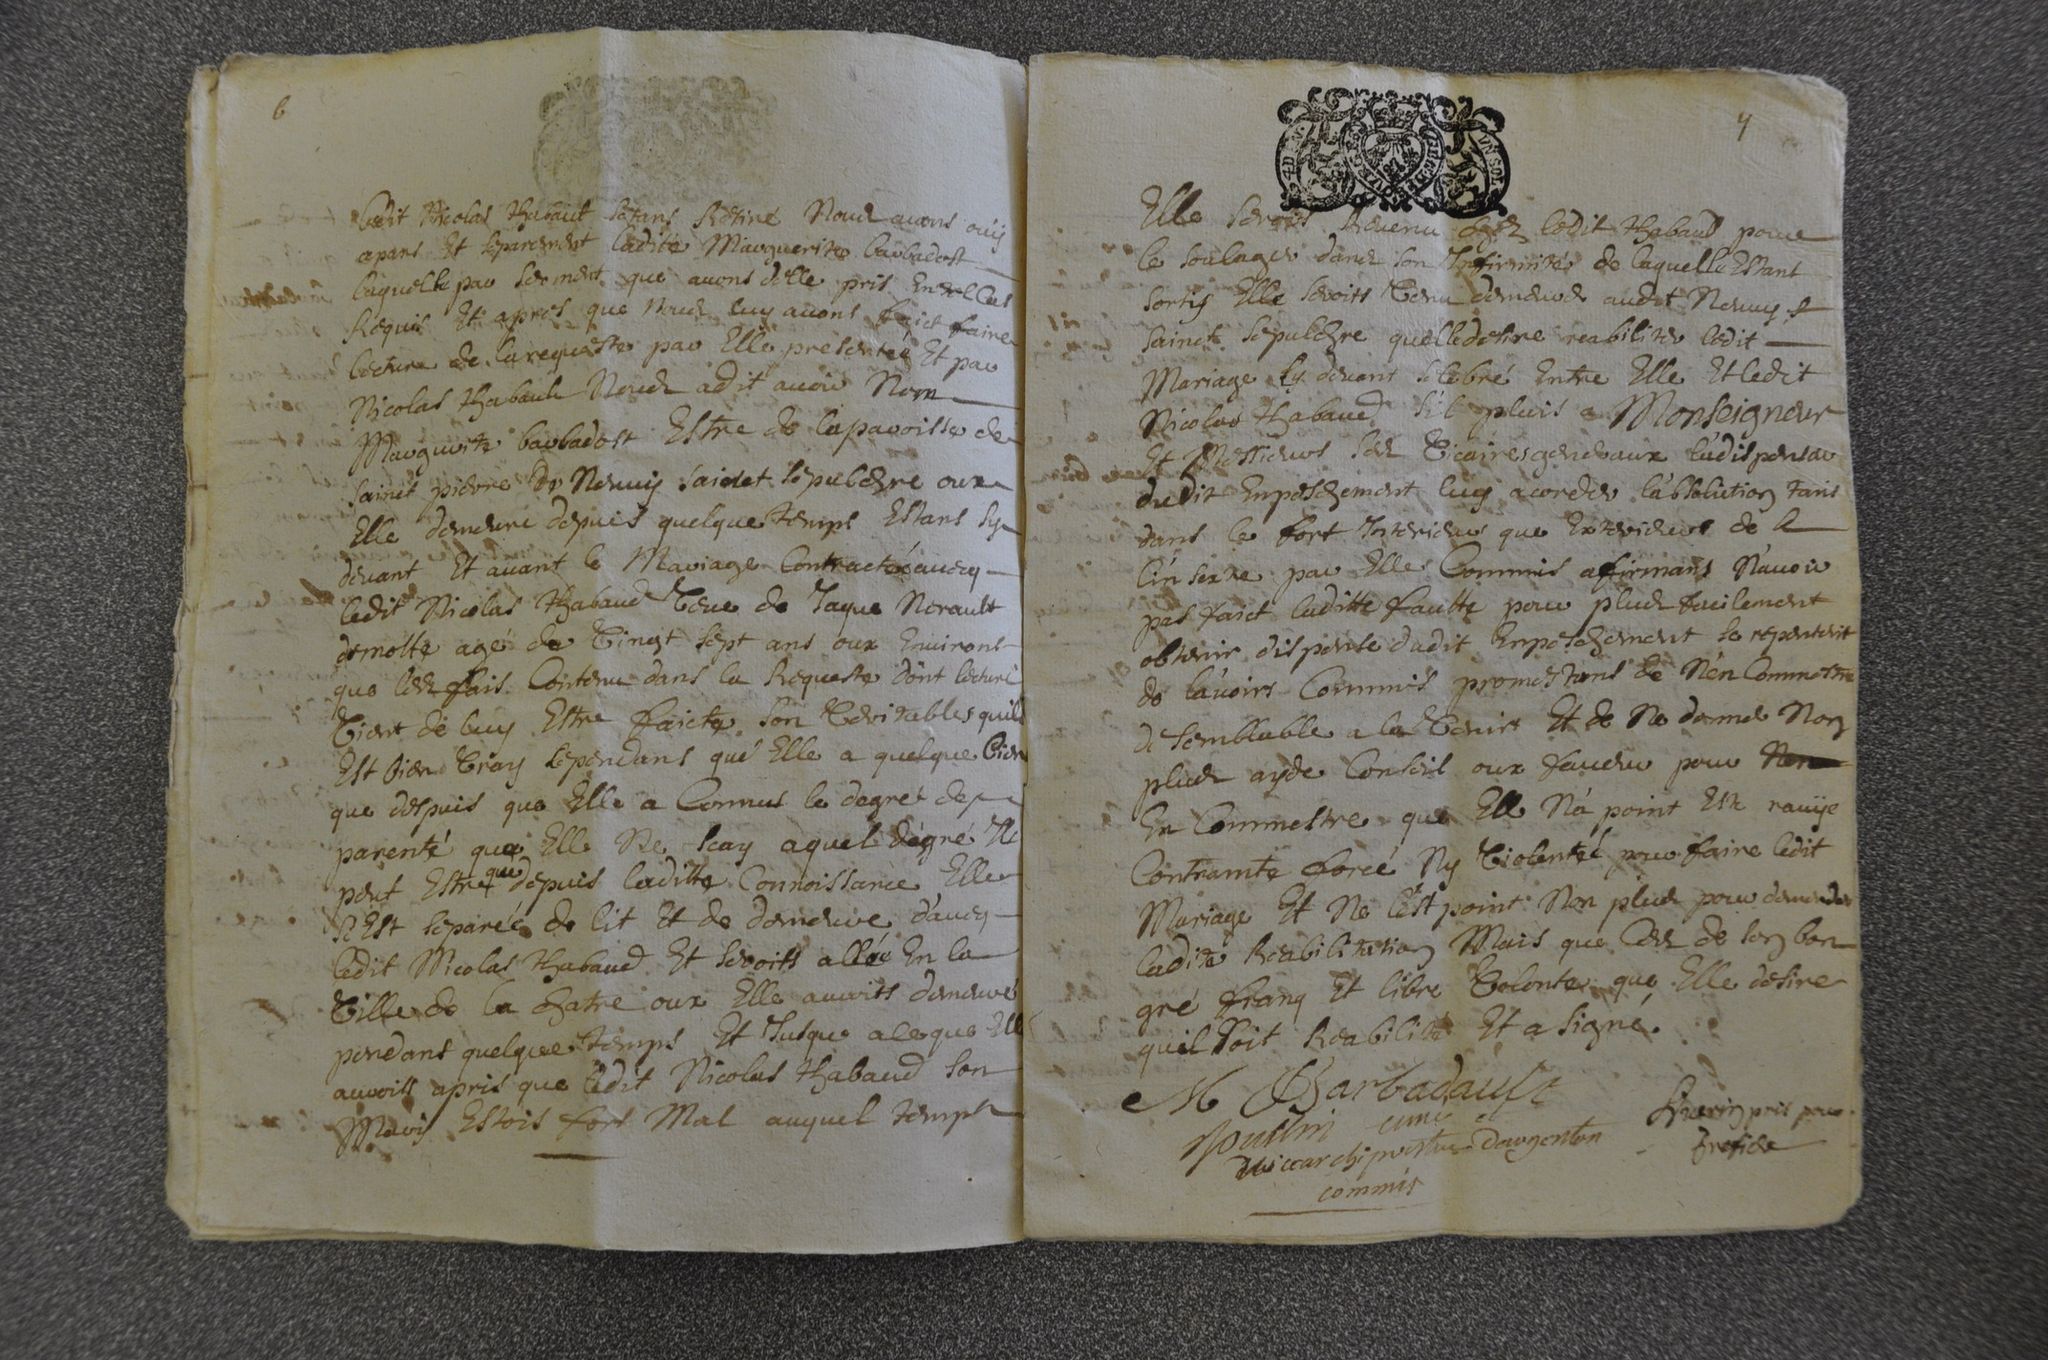 6
ledit Nicolas thabault setans Retiré Nous avons ouy
apars Et separement ladite Marguerite barbadost
laquelle par serment que avons delle pris En tel cas
Requis Et apres que nous luy avons faict faire
lecture de la requeste par Elle presentée Et par
Nicolas thabault Nous a dit avoir Nom
Marguerite barbadost Estre de la paroisse de
sainct pierre de Neuuij sainct sepulchre oux
Elle demeure depuis quelque temps Estans sy
devant Et avant le Mariage Contracté avecq
ledit Nicolas thabaud veve de Jaque Nerault
agé de vingt sept ans oux Environs
que les fais Contenu dans la Requeste dont lecture
vient de luy Estre faicte son veritables quil
Est bien vray sependans que Elle a quelque bien
que despuis que Elle a Connus le degré de
parenté que Elle Ne scay a quel dégré Ils
peut Estre que depuis laditte Connoissance Elle
s'Est separée de lit Et de demeure d'avecq
ledit Nicolas thabaud Et seroits allée En la
ville de la chatre oux Elle auroits demeuré
pendans quelque temps Et Jusque a ce que Elle
auroits apris que ledit Nicolas thabaud son
Mary Estois fort Mal auquel temps
Elle seroits Revenu chez ledit thabaud pour
le soulager dans son Infirmité de laquelle Estant
sortis Elle seroits venu demeurer audit Neuuy
sainct sepulchre quelle desire reabiliter ledit
Mariage sy devant selebré Entre Elle Et ledit
Nicolas thabaud s'il plais a Monseigneur
Et Messieurs les vicaires generaux la dispenser
dudit Enpeschement luy acorder l'absolution tans
dans le fort Interieur que Exterieur de
l'inseste par Elle Commis affirmans N'avoir
pas faict laditte faulte pour plus facilement
obtenir dispense dudit Enpeschement se repentent
de l'avoirs Commis promettans de N'en Commettre
de semblable a la venir Et de Ne donner Non
plus ayde Conseil oux faveur pour
En Commestre que Elle N'a point Este ravije
Contrainte forcé Ny violenté pour faire ledit
Mariage Et Ne l'est point Non plus pour demander
ladite Reabilitation Mais que Cest de son bon
gré franq Et libre volonte que Elle desire
quil soit Reabilité Et a signé.
M Barbadault
curé
archiprestre Dargenton
commis
pris pour